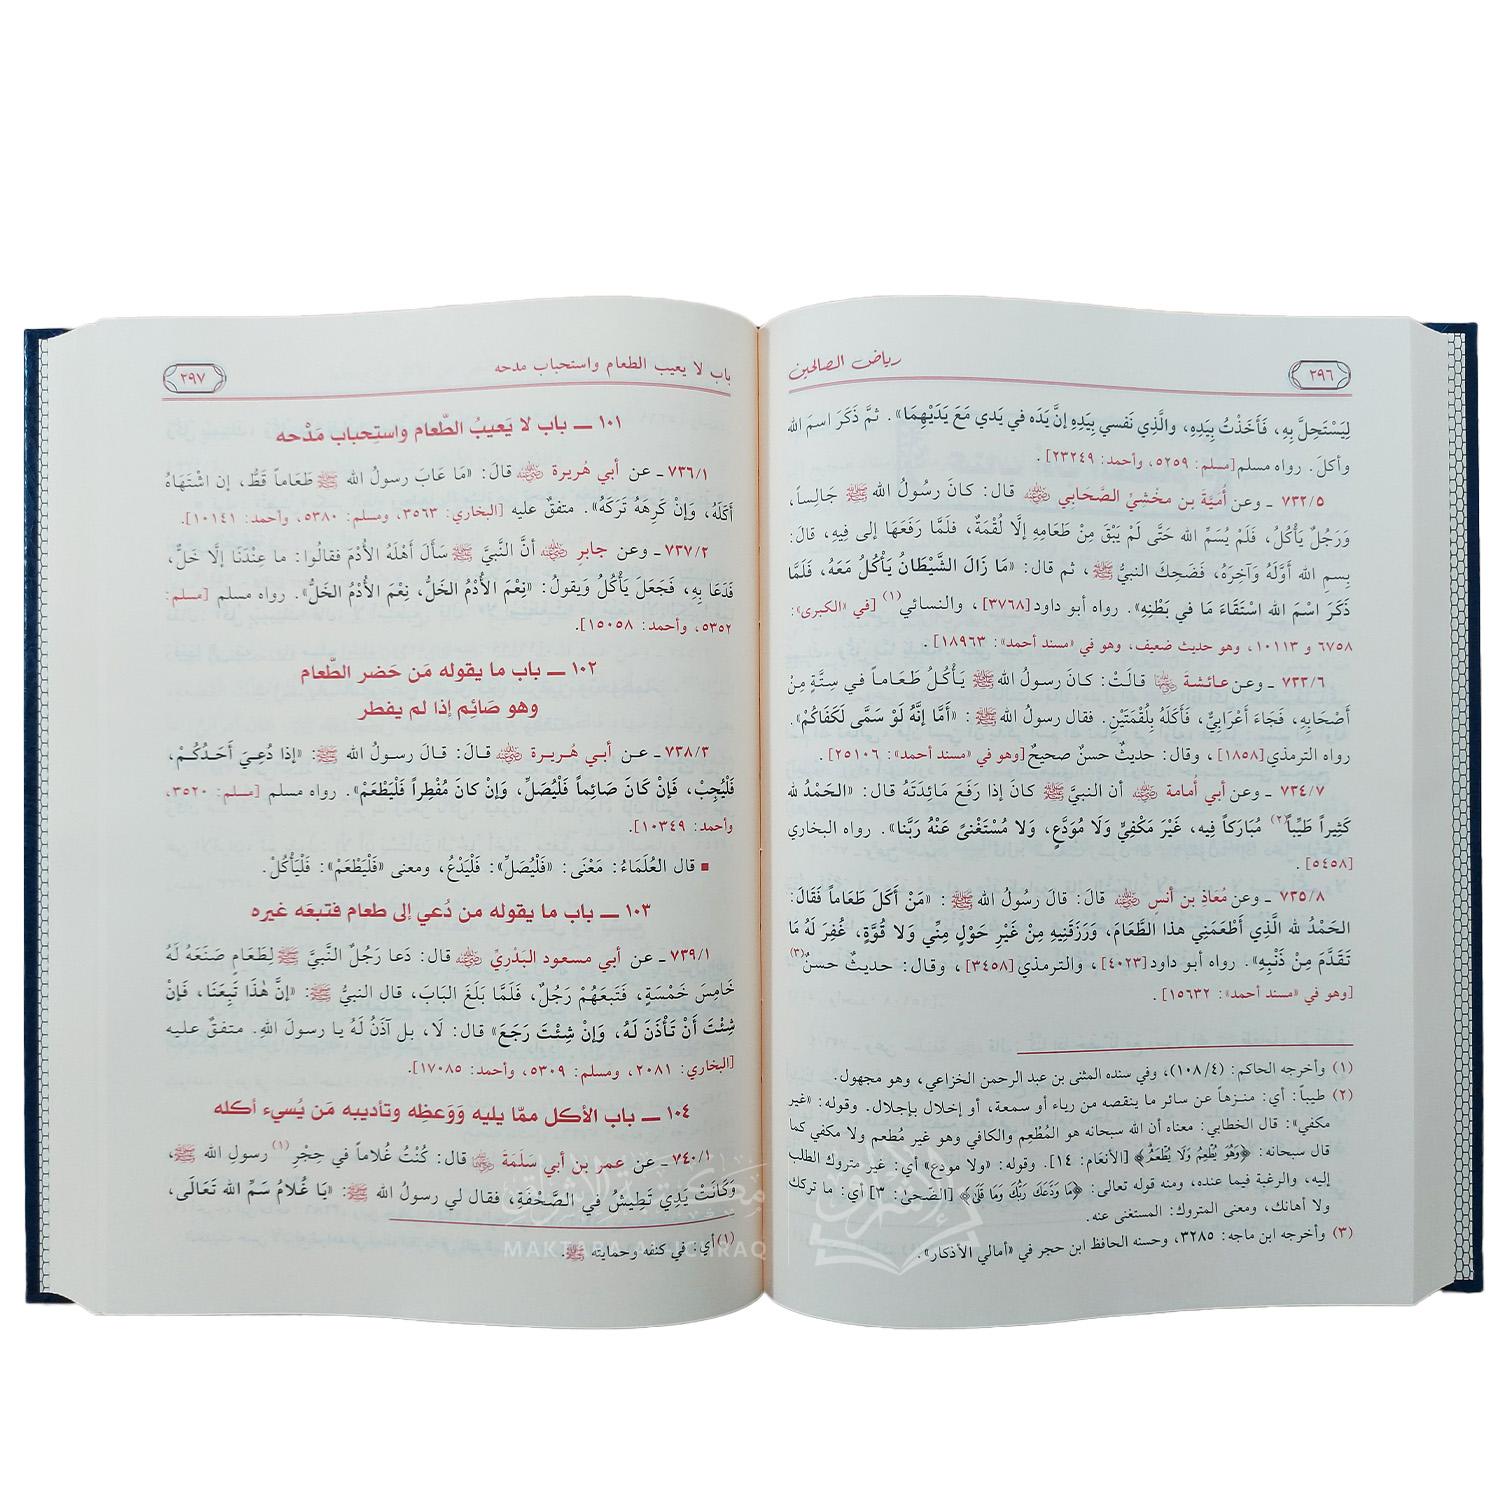 ٢٩٦
رياض الصالحين
لِيَسْتَحِلَّ بِهِ، فَأَخَذْتُ بِيَدِهِ، والَّذِي نَفسي بِيَدِهِ إنَّ يَدَه في يَدي مَعَ يَدَيْهِمَا». ثمَّ ذَكَرَ اسمَ الله
وأكلَ. رواه مسلم [مسلم: ٥٢٥٩، وأحمد: ٢٣٢٤٩].
٧٣٢/٥ ـ وعن أُمَيَّة بن مَخْشِيِّ الصَّحَابي رضي الله عنه قال: كانَ رسُولُ الله ﷺ جَالِساً،
وَرَجُلٌ يَأْكُلُ، فَلَمْ يُسَمِّ الله حَتَّى لَمْ يَبْقَ مِنْ طَعَامِهِ إلَّا لُقْمَةٌ، فَلَمَّا رَفَعَهَا إلى فِيهِ، قالَ:
بِسمِ الله أَوَّلَهُ وَآخِرَهُ، فَضَحِكَ النبيُّ ﷺ، ثم قال: «مَا زَالَ الشَّيْطَانُ يَأْكُلُ مَعَهُ، فَلَمَّا
ذَكَرَ اسْمَ الله اسْتَقَاءَ مَا في بَطْنِهِ». رواه أبو داود [٣٧٦٨]، والنسائي(١) [في «الكبرى»:
٦٧٥٨ و ١٠١١٣، وهو حديث ضعيف، وهو في «مسند أحمد»: ١٨٩٦٣].
٧٣٣/٦ ـ وعن عائشةَ رضي الله عنها قالَتْ: كانَ رسولُ الله ﷺ يَأْكُلُ طَعَاماً في سِتَّةٍ مِنْ
أَصْحَابِهِ، فَجَاءَ أَعْرَابِيٌّ، فَأَكَلَهُ بِلُقْمَتَيْنِ. فقال رسولُ الله ﷺ: «أَمَا إنَّهُ لَوْ سَمَّى لَكَفَاكُمْ».
رواه الترمذي [١٨٥٨]، وقال: حديثٌ حسنٌ صحيحٌ [وهو في «مسند أحمد»: ٢٥١٠٦].
٧٣٤/٧ ـ وعن أبي أُمامة رضي الله عنه أن النبيَّ ﷺ كانَ إذا رَفَعَ مَائِدَتَهُ قال: «الحَمْدُ لله
كَثِيراً طَيِّباً(٢) مُبَارَكاً فِيه، غَيْرَ مَكْفِيٍّ وَلَا مُوَدَّعٍ، وَلا مُسْتَغْنىً عَنْهُ رَبَّنا». رواه البخاري
[٥٤٥٨].
٧٣٥/٨ ـ وعن مُعَاذِ بن أنسٍ رضي الله عنه قالَ: قالَ رسُولُ الله ﷺ: «مَنْ أَكَلَ طَعَاماً فَقَالَ:
الحَمْدُ لله الَّذِي أَطْعَمَنِي هذا الطَّعَامَ، وَرَزَقَنِيهِ مِنْ غَيْرِ حَوْلٍ مِنِّي وَلا قُوَّةٍ، غُفِرَ لَهُ مَا
تَقَدَّمَ مِنْ ذَنْبِهِ». رواه أبو داود [٤٠٢٣]، والترمذي [٣٤٥٨]، وقال: حديثٌ حسنٌ(٣)
[وهو في «مسند أحمد»: ١٥٦٣٢].
(١) وأخرجه الحاكم: (١٠٨/٤)، وفي سنده المثنى بن عبد الرحمن الخزاعي، وهو مجهول.
(٢) طيباً: أي: منزهاً عن سائر ما ينقصه من رياء أو سمعة، أو إخلال بإجلال. وقوله: «غير
مكفي»: قال الخطابي: معناه أن الله سبحانه هو المُطْعِم والكافي وهو غير مُطعم ولا مكفي كما
قال سبحانه: ﴿وَهُوَ يُطْعِمُ وَلَا يُطْعَمُ﴾ [الأنعَام: ١٤]. وقوله: «ولا مودع» أي: غير متروك الطلب
إليه، والرغبة فيما عنده، ومنه قوله تعالى: ﴿مَا وَدَّعَكَ رَبُّكَ وَمَا قَلَىٰ﴾ [الضّحىٰ: ٣] أي: ما تركك
ولا أهانك، ومعنى المتروك: المستغنى عنه.
(٣) وأخرجه ابن ماجه: ٣٢٨٥، وحسنه الحافظ ابن حجر في «أمالي الأذكار».
باب لا يعيب الطعام واستحباب مدحه
٢٩٧
١٠١ ـ باب لا يَعيبُ الطّعام واستِحباب مَدْحه
٧٣٦/١ ـ عن أبي هُريرة رضي الله عنه قالَ: «مَا عَابَ رسولُ الله ﷺ طَعَاماً قَطُّ، إن اشْتَهَاهُ
أَكَلَهُ، وَإنْ كَرِهَهُ تَرَكَهُ». متفقٌ عليه [البخاري: ٣٥٦٣، ومسلم: ٥٣٨٠، وأحمد: ١٠١٤١].
٧٣٧/٢ ـ وعن جابرٍ رضي الله عنه أنَّ النَّبيَّ ﷺ سَأَلَ أَهْلَهُ الأُدْمَ فقالُوا: ما عِنْدَنَا إلَّا خَلٌّ،
فَدَعَا بِهِ، فَجَعَلَ يَأْكُلُ وَيقولُ: «نِعْمَ الأُدْمُ الخَلُّ، نِعْمَ الأُدْمُ الخَلُّ». رواه مسلم [مسلم:
٥٣٥٢، وأحمد: ١٥٠٥٨].
١٠٢ ـ باب ما يقوله مَن حَضر الطّعام
وهو صَائِم إذا لم يفطر
٧٣٨/٣ ـ عن أبي هُريرة رضي الله عنه قالَ: قالَ رسولُ الله ﷺ: «إذا دُعِيَ أَحَدُكُمْ،
فَلْيُجِبْ، فَإنْ كَانَ صَائِماً فَلْيُصَلِّ، وَإنْ كانَ مُفْطِراً فَلْيَطْعَمْ». رواه مسلم [مسلم: ٣٥٢٠،
وأحمد: ١٠٣٤٩].
■ قال العُلَمَاءُ: مَعْنَى: «فَلْيُصَلِّ»: فَلْيَدْعُ، ومعنى «فَلْيَطْعَمْ»: فَلْيَأْكُلْ.
١٠٣ ـ باب ما يقوله من دُعي إلى طعام فتبعَه غيره
٧٣٩/١ ـ عن أبي مسعود البَدْريِّ رضي الله عنه قال: دَعا رَجُلٌ النَّبيَّ ﷺ لِطَعَامٍ صَنَعَهُ لَهُ
خَامِسَ خَمْسَةٍ، فَتَبِعَهُمْ رَجُلٌ، فَلَمَّا بَلَغَ البَابَ، قال النبيُّ ﷺ: «إنَّ هٰذَا تَبِعَنَا، فَإنْ
شِئْتَ أَنْ تَأْذَنَ لَهُ، وَإنْ شِئْتَ رَجَعَ» قال: لَا، بل آذَنُ لَهُ يا رسولَ اللهِ. متفقٌ عليه
[البخاري: ٢٠٨١، ومسلم: ٥٣٠٩، وأحمد: ١٧٠٨٥].
١٠٤ ـ باب الأكل ممّا يليه وَوَعظِه وتأديبه مَن يُسيء أكله
٧٤٠/١ ـ عن عمر بن أبي سَلَمَةَ رضي الله عنه قال: كُنْتُ غُلاماً في حِجْرِ(١) رسولِ الله ﷺ،
وَكَانَتْ يَدِي تَطِيشُ في الصَّحْفَةِ، فقال لي رسولُ الله ﷺ: «يَا غُلامُ سَمِّ الله تَعَالَى،
(١) أي: في كنفه وحمايته ﷺ.
مكتبة الإشراق
MAKTABA AL ICHRAQ
الإشراق